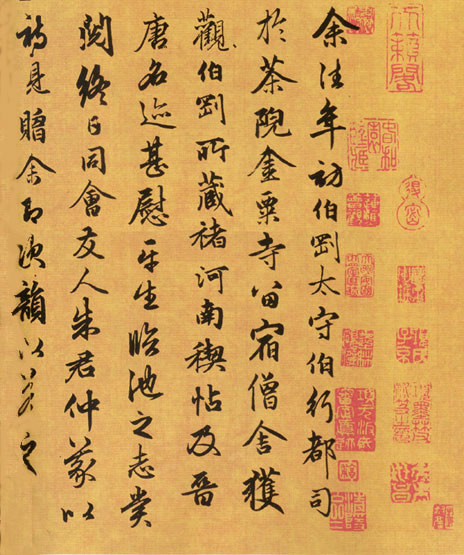 天籟閣
余往年訪伯剛太守伯行都司
於茶院金粟寺留宿僧舍獲
觀伯剛所藏褚河南禊帖及晉
唐名迹甚慰平生臨池之志賞
閱終日同會友人朱君仲義以
詩見贈余即次韻以答之